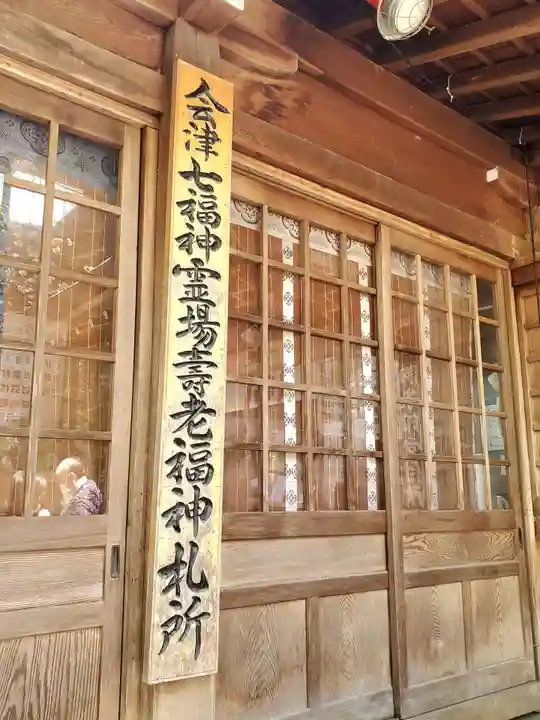 会津七福神霊場壽老福神札所